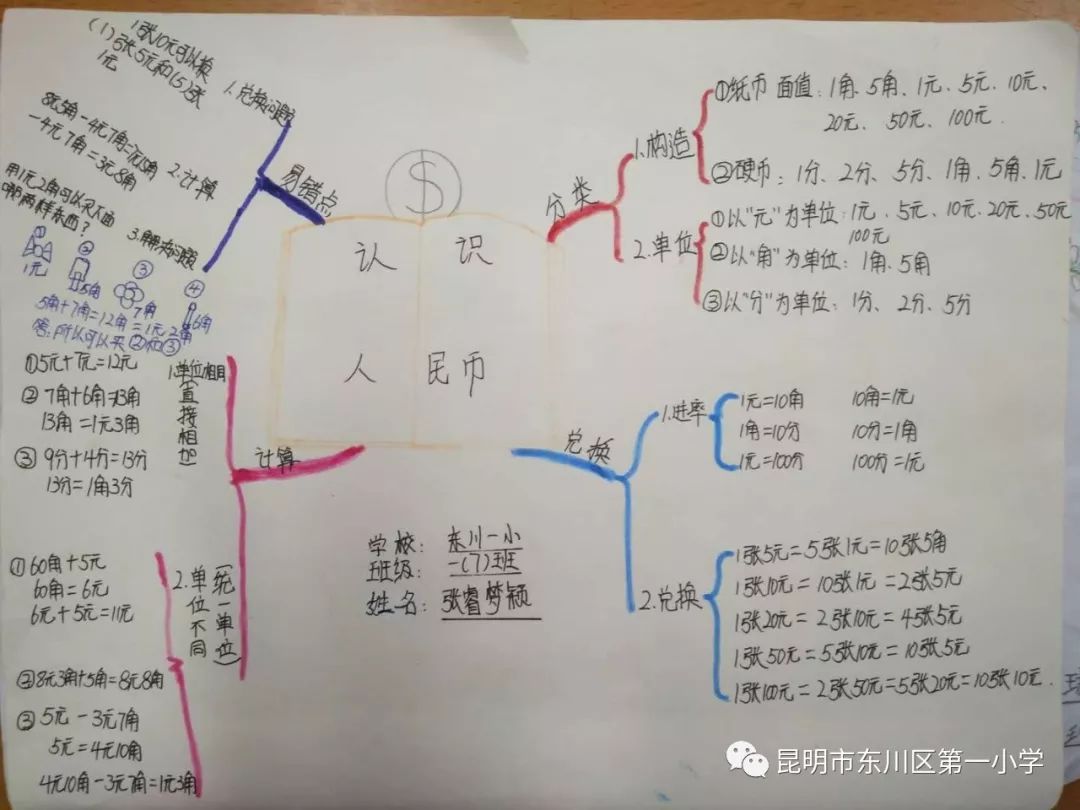 认识
人民币
$
学校：东川一小
班级：一（7）班
姓名：张睿梦颖
分类
1.构造
①纸币 面值：1角、5角、1元、5元、10元、
20元、50元、100元.
②硬币：1分、2分、5分、1角、5角、1元
2.单位
①以“元”为单位：1元、5元、10元、20元、50元
100元
②以“角”为单位：1角、5角
③以“分”为单位：1分、2分、5分
兑换
1.进率
1元=10角 10角=1元
1角=10分 10分=1角
1元=100分 100分=1元
2.兑换
1张5元=5张1元=10张5角
1张10元=10张1元=2张5元
1张20元=2张10元=4张5元
1张50元=5张10元=10张5元
1张100元=2张50元=5张20元=10张10元.
易错点
1.兑换问题
1张10元可以换
（1）张5元和（5）张
1元
2.计算
8元5角-4元7角=7元15角
-4元7角=3元8角
3.解决问题
用1元2角可以买下面
哪两样东西？
① 1元
② 5角
③ 7角
④ 6角
5角+7角=12角=1元2角
答：所以可以买②和③
计算
1.单位相同（直接相加）
①5元+7元=12元
②7角+6角=13角
13角=1元3角
③9分+4分=13分
13分=1角3分
2.单位不同（统一单位）
①60角+5元
60角=6元
6元+5元=11元
②8元3角+5角=8元8角
③5元-3元7角
5元=4元10角
4元10角-3元7角=1元3角
昆明市东川区第一小学